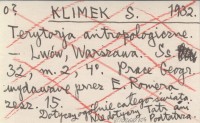 03 KLIMEK S. 1932.
Terytorja antropologiczne.
— Lwów, Warszawa. Ss
32, m. 2, 4°. Prace Geogr.
wydawane przez E. Romera
zesz. 15.
Dotyczy całego świata
Nie dotyczy Tatr ani
Podtatrza.